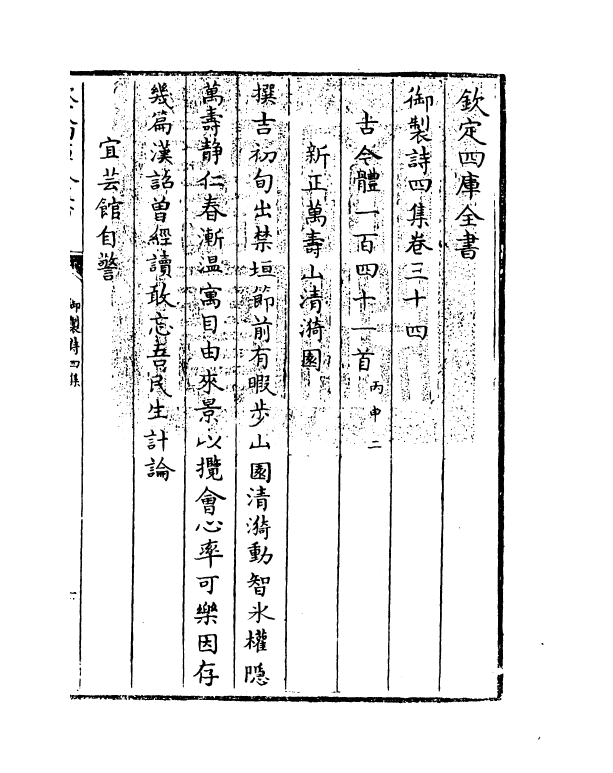 欽定四庫全書
御製詩四集卷三十四
古今體一百四十一首丙申二
新正萬壽山清漪園
撰吉初旬出禁垣節前有暇步山園清漪動智氷權隠
萬壽静仁春漸温寓目由來景以攬會心率可樂因存
幾篇漢詔曾經讀敢忘吾民生計論
宜芸館自警
御製詩四集
一